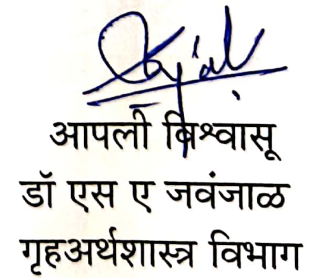 आपली विश्वासू
डॉ एस ए जवंजाळ
गृहअर्थशास्त्र विभाग